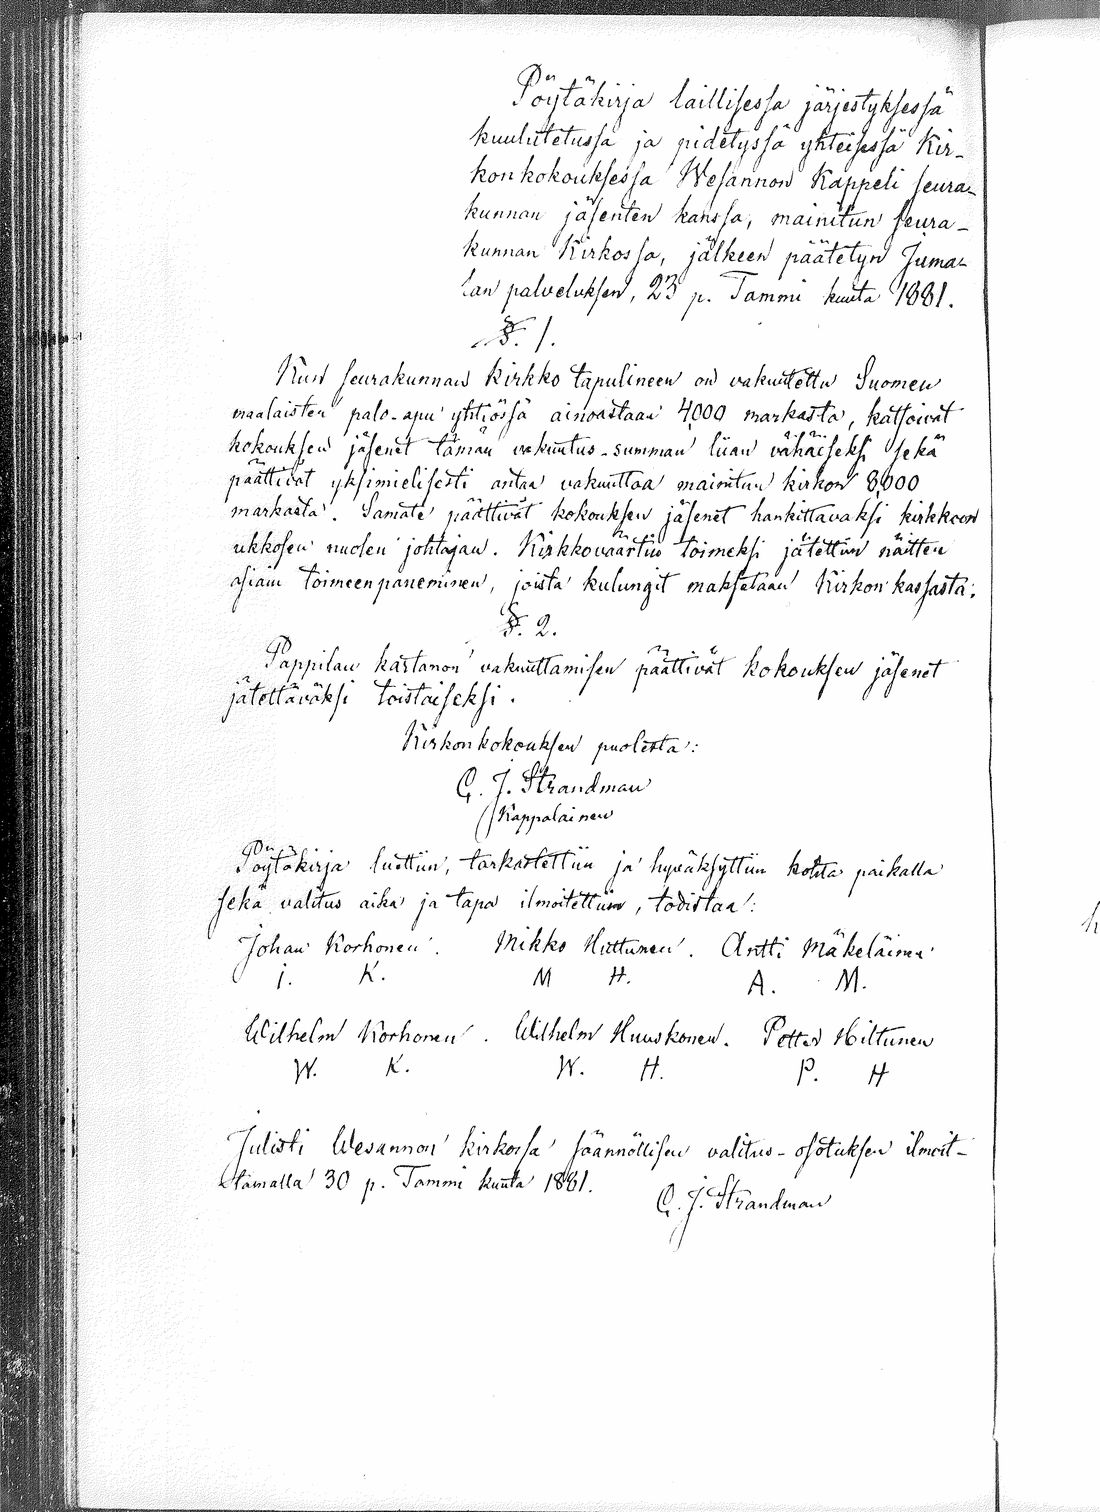 Pöytäkirja laillisessa järjestyksessä
kuulutetussa ja pidetyssä yhteisessä Kir-
konkokouksessa Wesannon Kappeli seura-
kunnan jäsenten kanssa, mainitun seura-
kunnan Kirkossa, jälkeen päätetyn Juma-
lan palveluksen, 23 p. Tammi kuuta 1881.
§. 1.
Kun seurakunnan kirkko tapulineen on vakuutettu Suomen
maalaisten palo-apu yhtiössä ainoastaan 4,000 markasta, katsoivat
kokouksen jäsenet tämän vakuutus-summan liian vähäiseksi sekä
päättivät yksimielisesti antaa vakuuttaa mainitun kirkon 8,000
markasta. Samate päättivät kokouksen jäsenet hankittavaksi kirkkoon
ukkosen nuolen johtajan. Kirkkovaärtin toimeksi jätettiin näitten
asiain toimeenpaneminen, joista kulungit maksetaan Kirkon kassasta.
§. 2.
Pappilan kartanon vakuuttamisen päättivät kokouksen jäsenet
jätettäväksi toistaiseksi.
Kirkonkokouksen puolesta:
C. J. Strandman
Kappalainen
Pöytäkirja luettiin, tarkastettiin ja hyväksyttiin kohta paikalla
sekä valitus aika ja tapa ilmoitettiin, todistaa:
Johan Korhonen. Mikko Huttunen. Antti Mäkeläinen
J. K. M H. A. M.
Wilhelm Korhonen. Wilhelm Huuskonen. Petter Hiltunen
W. K. W. H. P. H
Julisti Wesannon kirkossa säännöllisen valitus-osotuksen ilmoit-
tamalla 30 p. Tammi kuuta 1881.
C. J. Strandman